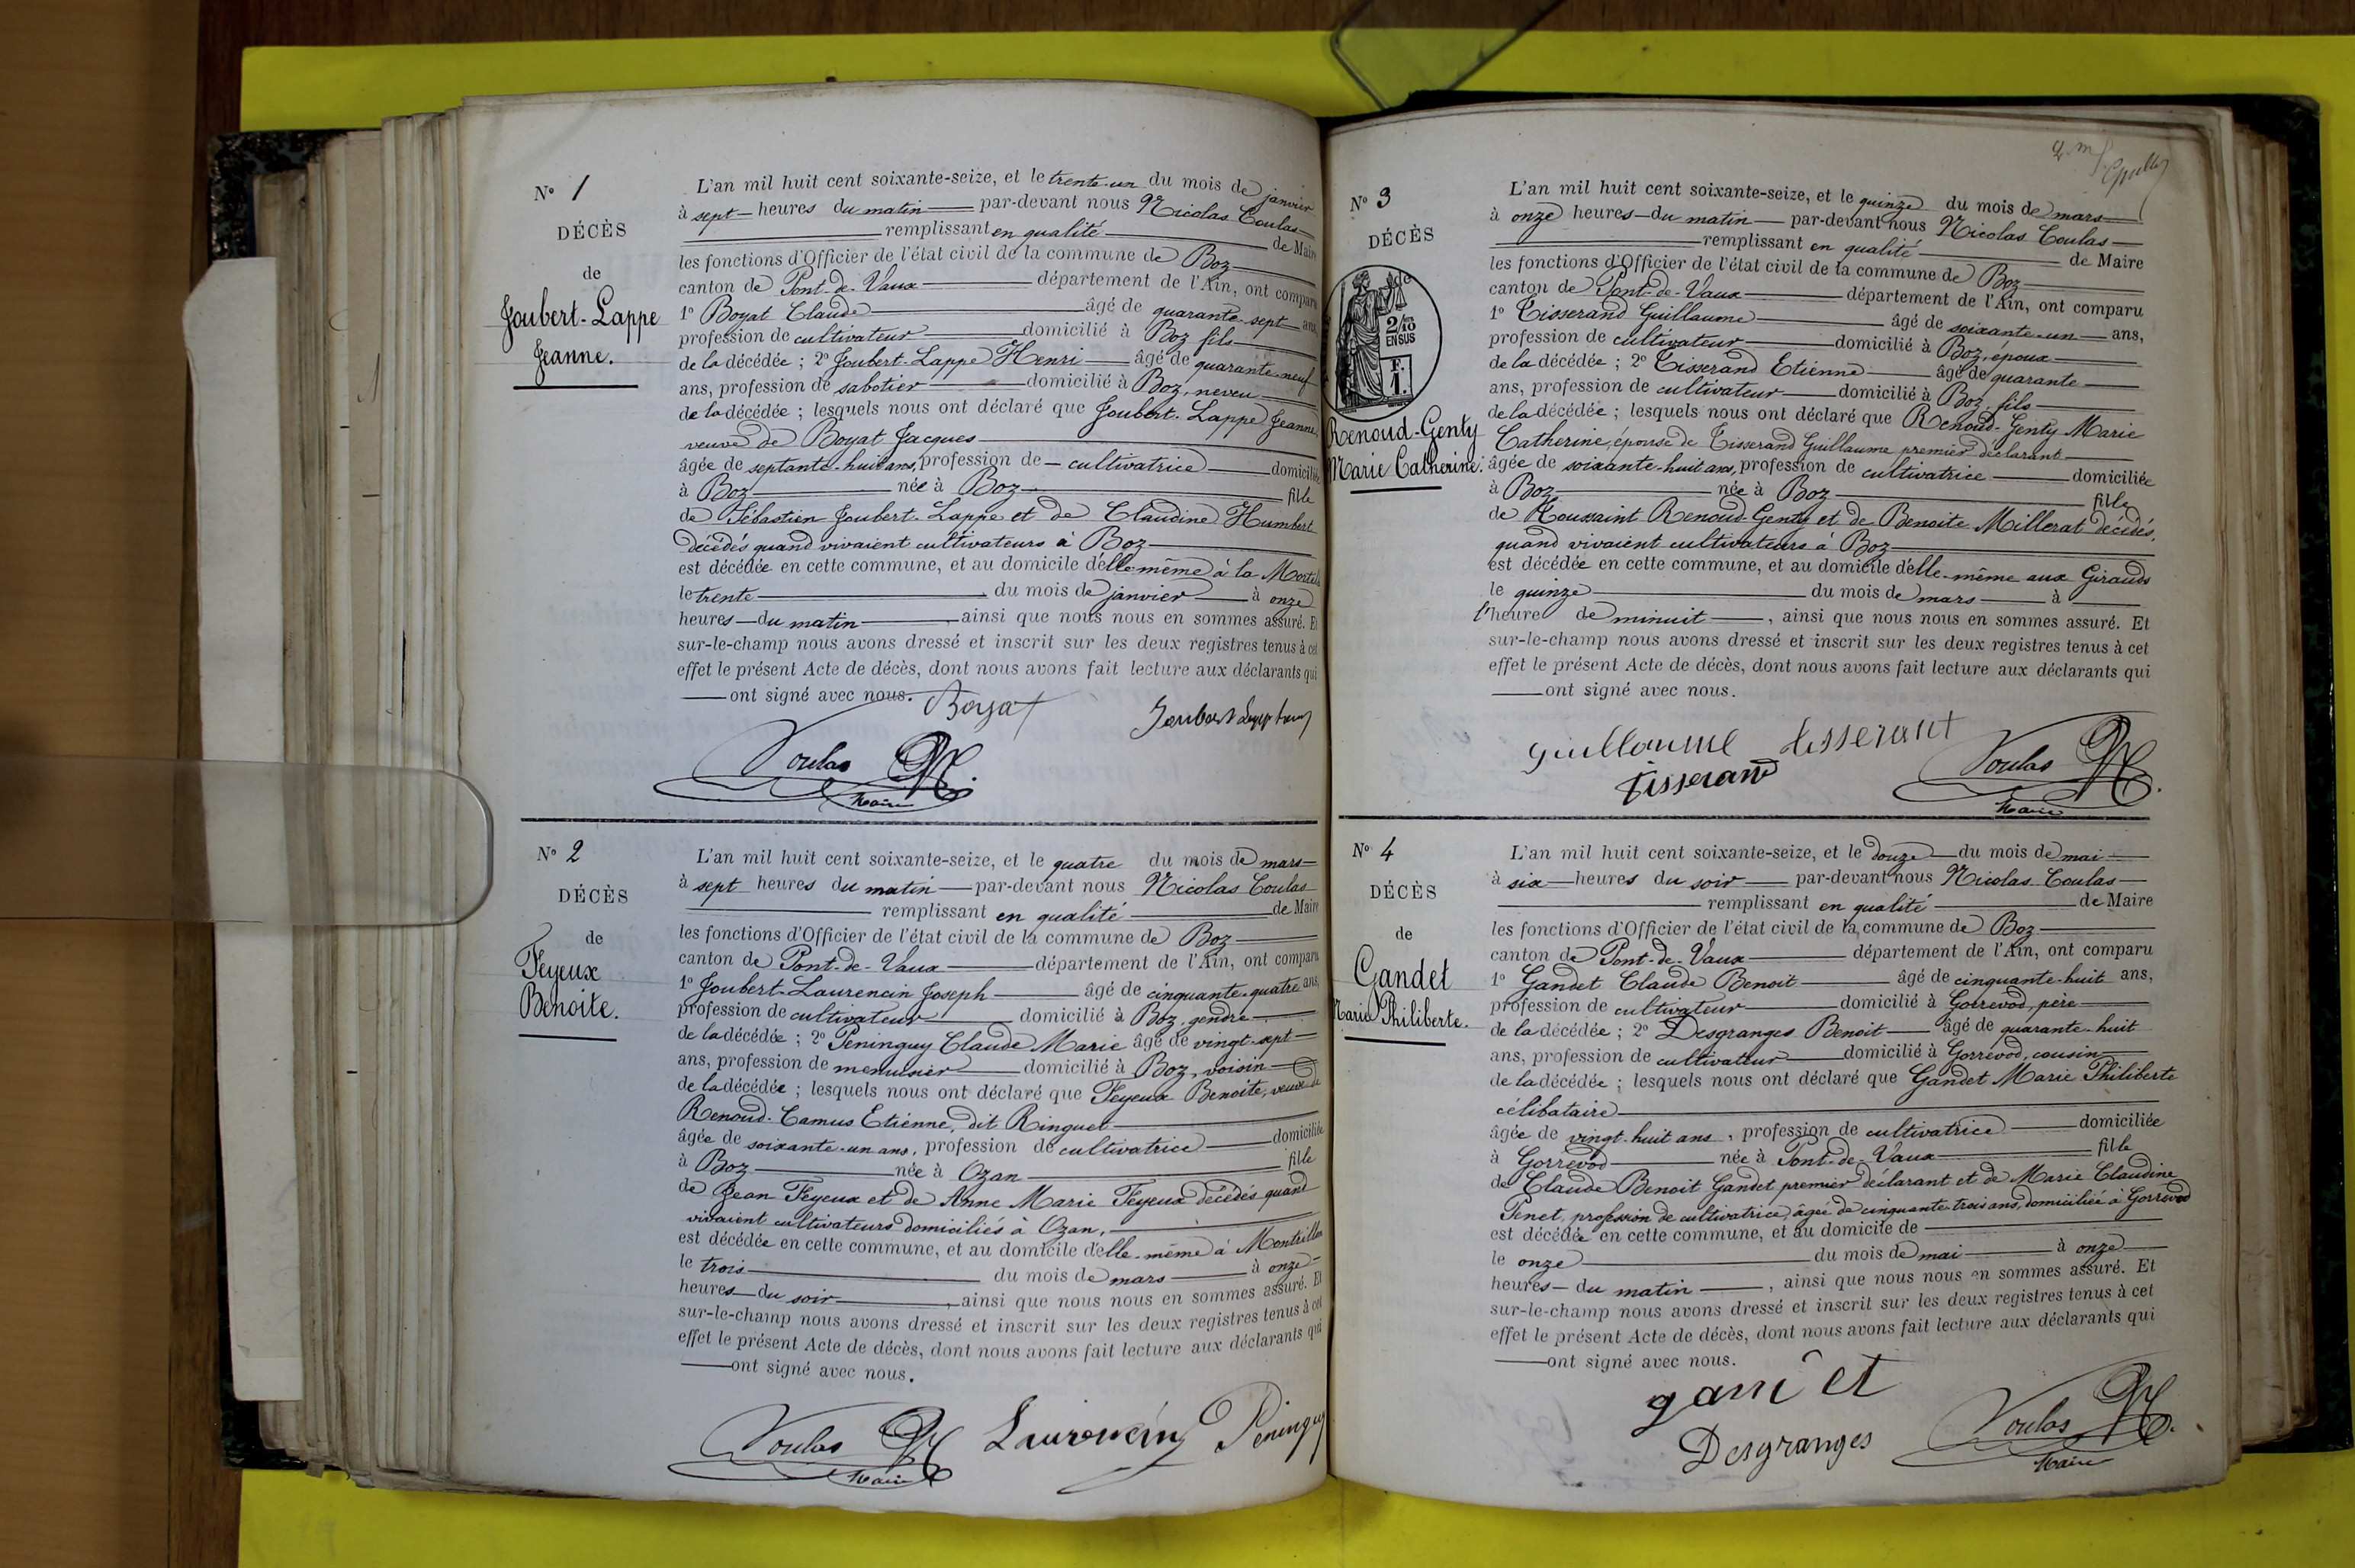 N° 1
DÉCÈS
de
Joubert-Lappe
Jeanne.
L'an mil huit cent soixante-seize, et le trente-un du mois de janvier
à sept heures du matin par-devant nous Nicolas Coulas
remplissant en qualité de Maire
les fonctions d'Officier de l'état civil de la commune de Boz
canton de Pont-de-Vaux département de l'Ain, ont comparu
1° Boyat Claude âgé de quarante-sept ans
profession de cultivateur domicilié à Boz fils
de la décédée ; 2° Joubert-Lappe Henri âgé de quarante-neuf
ans, profession de sabotier domicilié à Boz, neveu
de la décédée ; lesquels nous ont déclaré que Joubert-Lappe Jeanne,
veuve de Boyat Jacques
âgée de septante-huit ans, profession de cultivatrice domiciliée
à Boz née à Boz fille
de Sébastien Joubert-Lappe et de Claudine Humbert
décédés quand vivaient cultivateurs à Boz
est décédée en cette commune, et au domicile d'elle-même à la
le trente du mois de janvier à onze
heures du matin, ainsi que nous nous en sommes assuré. Et
sur-le-champ nous avons dressé et inscrit sur les deux registres tenus à cet
effet le présent Acte de décès, dont nous avons fait lecture aux déclarants qui
ont signé avec nous. Boyat
Coulas
Maire
N° 2
DÉCÈS
de
Feyeux
Benoite.
L'an mil huit cent soixante-seize, et le quatre du mois de mars
à sept heures du matin par-devant nous Nicolas Coulas
remplissant en qualité de Maire
les fonctions d'Officier de l'état civil de la commune de Boz
canton de Pont-de-Vaux département de l'Ain, ont comparu
1° Joubert-Laurencin Joseph âgé de cinquante-quatre ans,
profession de cultivateur domicilié à Boz, gendre
de la décédée ; 2° Peninguy Claude Marie âgé de vingt-sept
ans, profession de menuisier domicilié à Boz, voisin
de la décédée ; lesquels nous ont déclaré que Feyeux Benoite, veuve de
Renoud-Camus Etienne, dit Ringuet
âgée de soixante-un ans, profession de cultivatrice domiciliée
à Boz née à Ozan fille
de Jean Feyeux et de Anne Marie Feyeux décédés quand
vivaient cultivateurs domiciliés à Ozan,
est décédée en cette commune, et au domicile d'elle-même à
le trois du mois de mars à onze
heures du soir, ainsi que nous nous en sommes assuré. Et
sur-le-champ nous avons dressé et inscrit sur les deux registres tenus à cet
effet le présent Acte de décès, dont nous avons fait lecture aux déclarants qui
ont signé avec nous.
Coulas Laurencin Peninguy
Maire
N° 3
DÉCÈS
de
2/10
EN SUS
F.
1.
Renoud-Genty
Marie Catherine.
L'an mil huit cent soixante-seize, et le quinze du mois de mars
à onze heures du matin par-devant nous Nicolas Coulas
remplissant en qualité de Maire
les fonctions d'Officier de l'état civil de la commune de Boz
canton de Pont-de-Vaux département de l'Ain, ont comparu
1° Tisserand Guillaume âgé de soixante-un ans,
profession de cultivateur domicilié à Boz, époux
de la décédée ; 2° Tisserand Etienne âgé de quarante
ans, profession de cultivateur domicilié à Boz, fils
de la décédée ; lesquels nous ont déclaré que Renoud-Genty Marie
Catherine, épouse de Tisserand Guillaume premier déclarant
âgée de soixante-huit ans, profession de cultivatrice domiciliée
à Boz née à Boz fille
de Toussaint Renoud-Genty et de Benoite Millerat décédés,
quand vivaient cultivateurs à Boz
est décédée en cette commune, et au domicile d'elle-même aux Girauds
le quinze du mois de mars à
l'heure de minuit, ainsi que nous nous en sommes assuré. Et
sur-le-champ nous avons dressé et inscrit sur les deux registres tenus à cet
effet le présent Acte de décès, dont nous avons fait lecture aux déclarants qui
ont signé avec nous.
guillaume tisserant
tisserand Coulas
Maire
N° 4
DÉCÈS
de
Gandet
Marie Philiberte.
L'an mil huit cent soixante-seize, et le douze du mois de mai
à six heures du soir par-devant nous Nicolas Coulas
remplissant en qualité de Maire
les fonctions d'Officier de l'état civil de la commune de Boz
canton de Pont-de-Vaux département de l'Ain, ont comparu
1° Gandet Claude Benoit âgé de cinquante-huit ans,
profession de cultivateur domicilié à Gorrevod, père
de la décédée ; 2° Desgranges Benoit âgé de quarante-huit
ans, profession de cultivateur domicilié à Gorrevod, cousin
de la décédée ; lesquels nous ont déclaré que Gandet Marie Philiberte
célibataire
âgée de vingt-huit ans, profession de cultivatrice domiciliée
à Gorrevod née à Pont-de-Vaux fille
de Claude Benoit Gandet premier déclarant et de Marie Claudine
Pinet, profession de cultivatrice, âgée de cinquante-trois ans, domiciliée à Gorrevod
est décédée en cette commune, et au domicile de
le onze du mois de mai à onze
heures du matin, ainsi que nous nous en sommes assuré. Et
sur-le-champ nous avons dressé et inscrit sur les deux registres tenus à cet
effet le présent Acte de décès, dont nous avons fait lecture aux déclarants qui
ont signé avec nous.
Desgranges Coulas
Maire